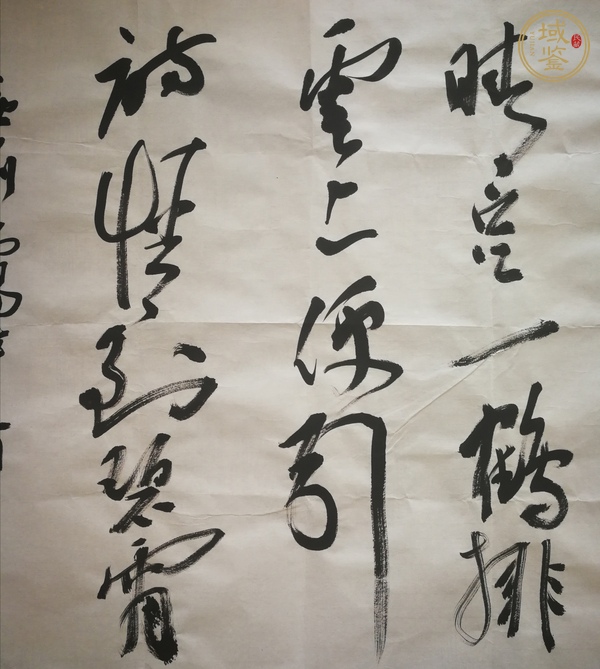 晴空一鹤排
云上便引
诗情到碧霄
域鉴